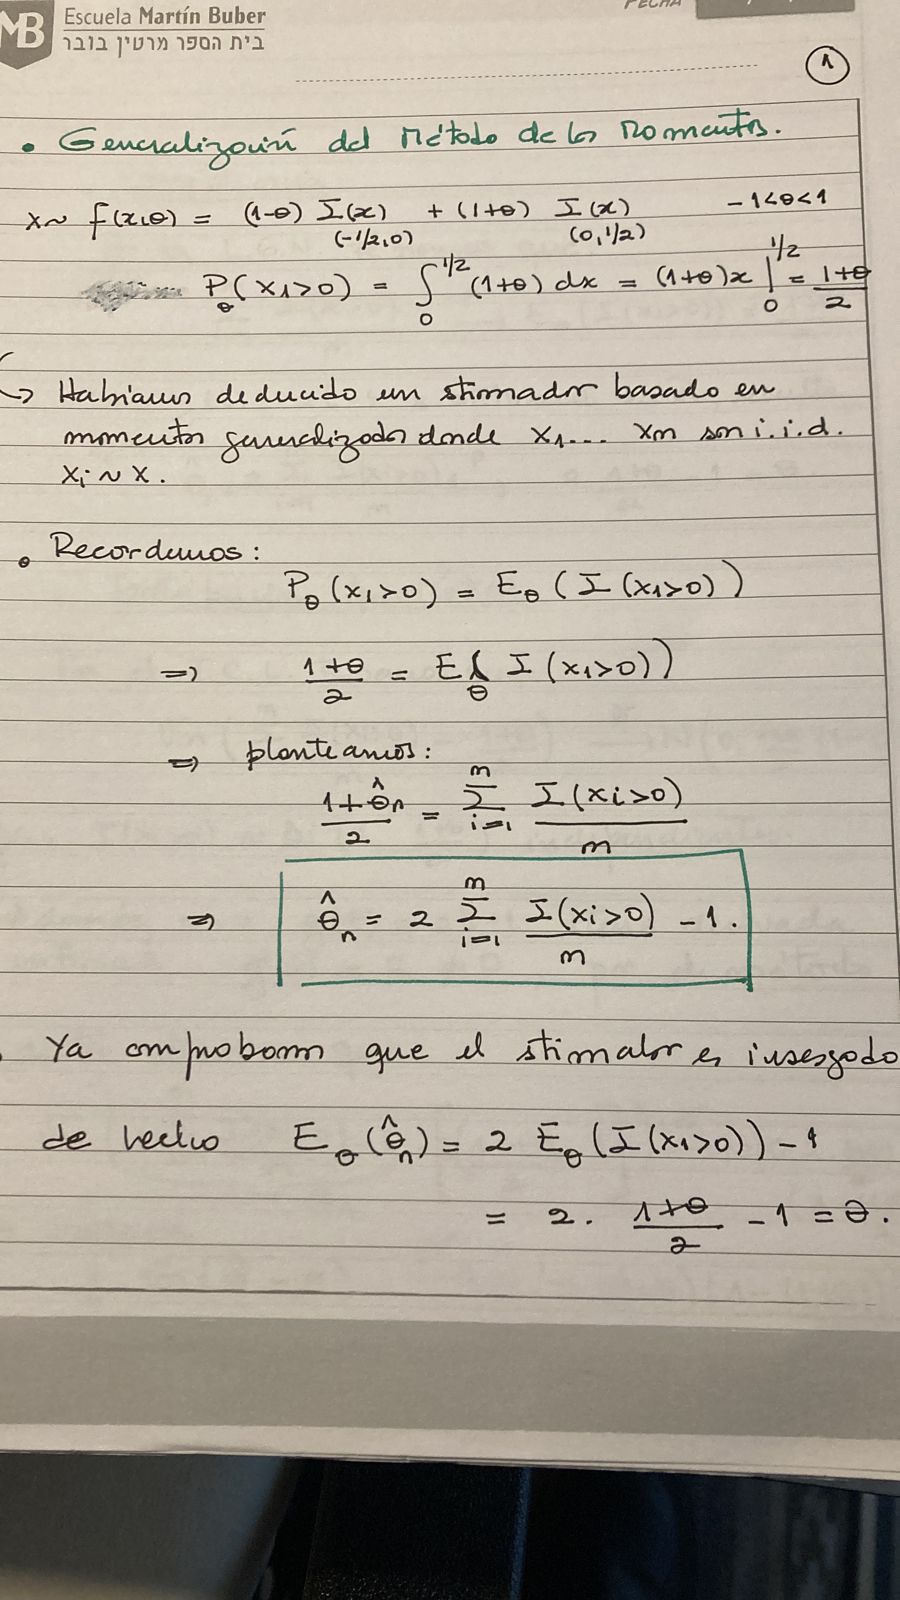 MB Escuela Martín Buber
בית הספר מרטין בובר
FECHA
1
• Generalización del Método de los Momentos.
X ~ f(x,θ) = (1-θ) I(x) (-1/2,0) + (1+θ) I(x) (0,1/2) -1<θ<1
P_θ(X1>0) = ∫_0^{1/2} (1+θ) dx = (1+θ)x |_0^{1/2} = (1+θ)/2
↳ Habíamos deducido un estimador basado en
momentos generalizados donde X1... Xn son i.i.d.
Xi ~ X.
• Recordemos:
P_θ(X1>0) = E_θ(I(X1>0))
⇒ (1+θ)/2 = E_θ(I(X1>0))
⇒ planteamos:
(1+θ̂_n)/2 = Σ_{i=1}^n I(Xi>0)/n
⇒ θ̂_n = 2 Σ_{i=1}^n I(Xi>0)/n - 1.
• Ya comprobamos que el estimador es insesgado
de hecho E_θ(θ̂_n) = 2 E_θ(I(X1>0)) - 1
= 2. (1+θ)/2 - 1 = θ.